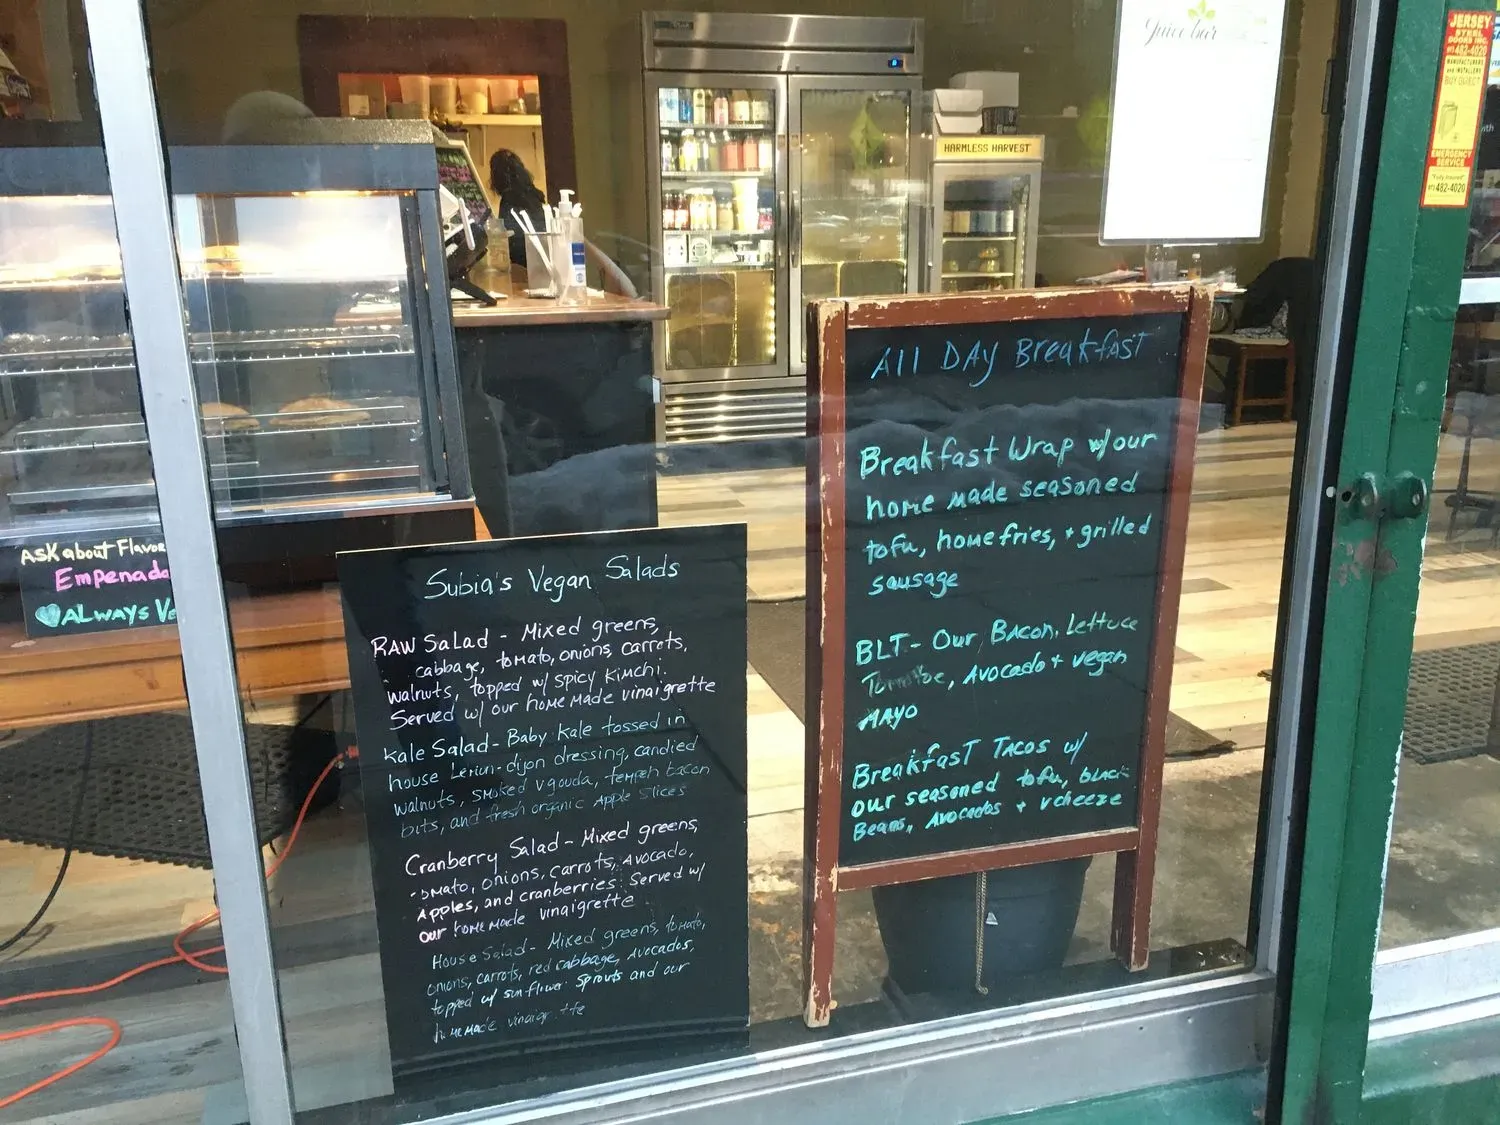 Juice bar
JERSEY
STEEL
DOORS INC.
482-4020
MANUFACTURERS
and INSTALLERS
BUY DIRECT
EMERGENCY
SERVICE
"Fully Insured"
482-4020
True
HARMLESS HARVEST
with
All DAy BreakfAST
Breakfast Wrap w/our
home made seasoned
tofu, homefries, + grilled
sausage
BLT- Our BAcon, Lettuce
Avocado + vegan
MAYO
BreakfasT TAcos w/
our seasoned tofu, black
Beans, Avocados + vcheeze
ASK about Flavor
Empenada
ALWAYS Ve
Subia's Vegan Salads
RAW SalAd - Mixed greens,
cabbage, tomato, onions, carrots,
walnuts, topped w/ spicy Kimchi.
Served w/ our home made vinaigrette
Kale Salad - Baby Kale tossed in
house Lemon-dijon dressing, candied
walnuts, smoked vgouda, tempeh bacon
bits, and fresh organic Apple Slices
Cranberry Salad - Mixed greens,
tomato, onions, carrots, Avocado,
Apples, and cranberries. Served w/
our homemade vinaigrette.
House Salad - Mixed greens, tomato,
onions, carrots, red cabbage, Avocados,
topped w/ sunflower Sprouts and our
homemade vinaigrette